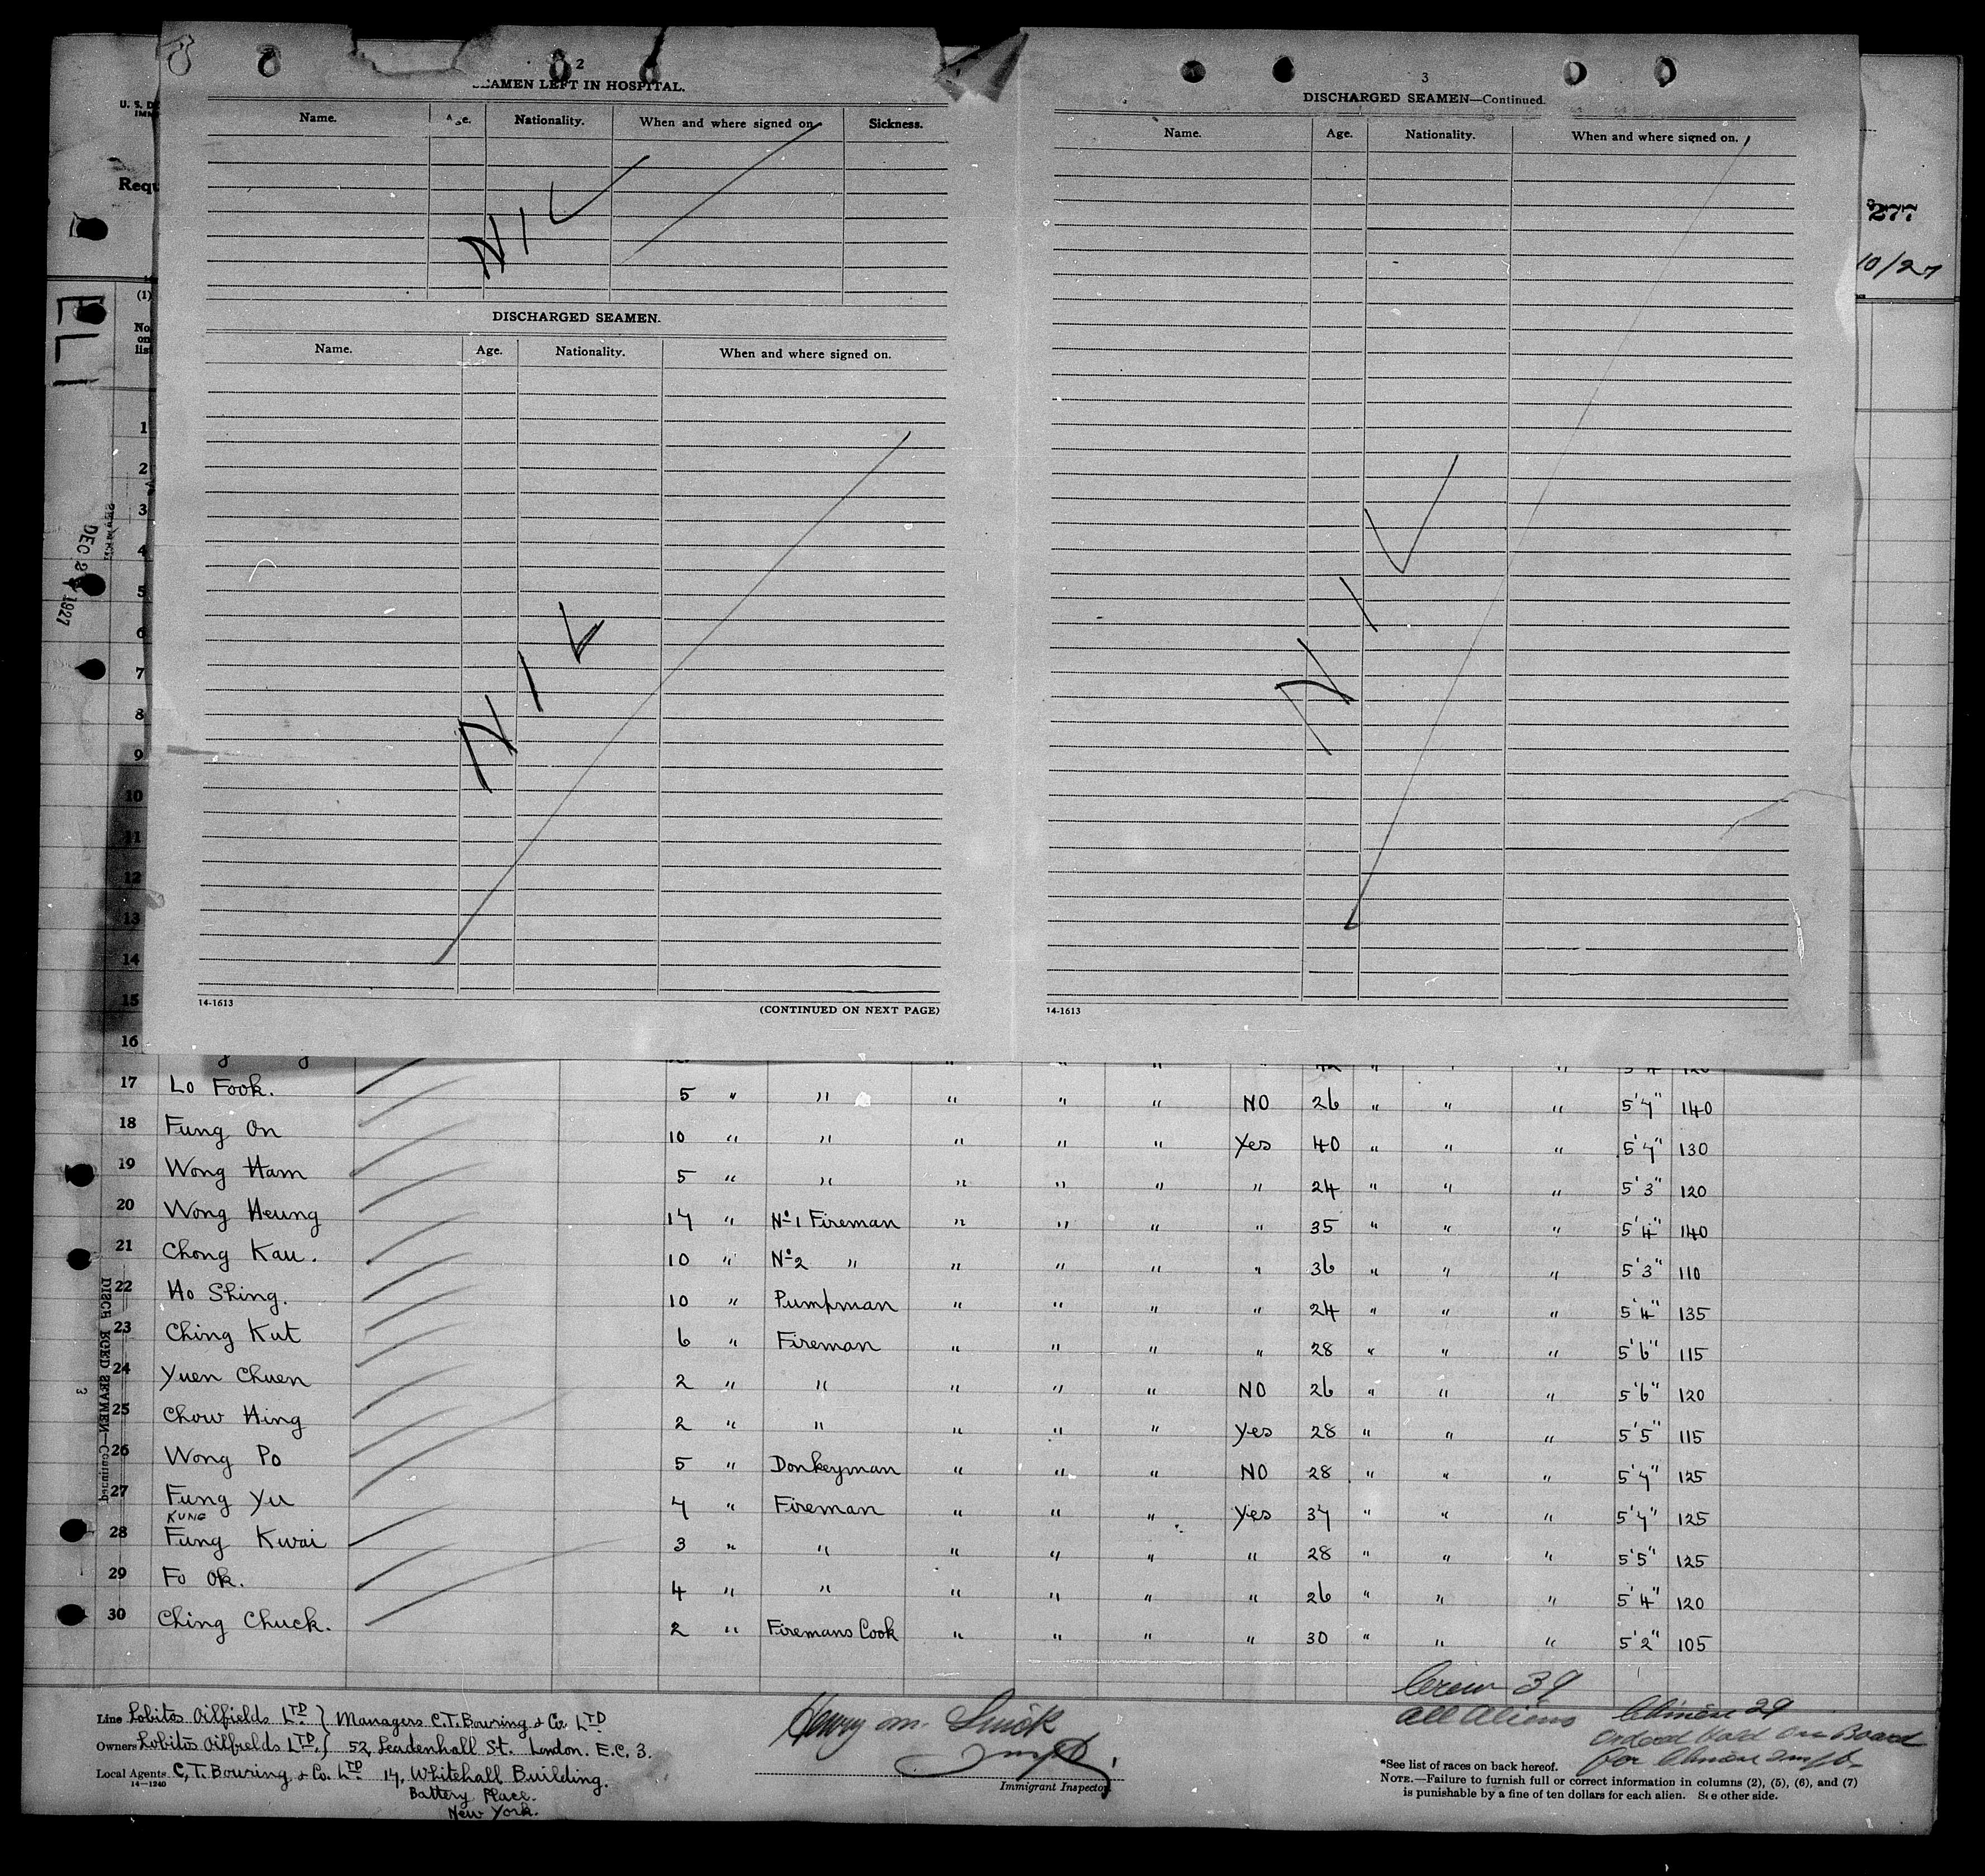 2
SEAMEN LEFT IN HOSPITAL.
Name. Age. Nationality. When and where signed on. Sickness.
NIL
DISCHARGED SEAMEN.
Name. Age. Nationality. When and where signed on.
NIL
14-1613
(CONTINUED ON NEXT PAGE)
3
DISCHARGED SEAMEN—Continued.
Name. Age. Nationality. When and where signed on.
NIL
14-1613
U. S. D
IMM
Requ
(1)
No.
on
list
277
10/27
ELI
DEC 2 1927
1
2
3
4
5
6
7
8
9
10
11
12
13
14
15
16
17 Lo Fook. 5 " " " " " NO 26 " " " 5'7" 140
18 Fung On 10 " " " " " Yes 40 " " " 5'7" 130
19 Wong Ham 5 " " " " " " 24 " " " 5'3" 120
20 Wong Heung 17 " Nº1 Fireman " " " " 35 " " " 5'4" 140
21 Chong Kau. 10 " Nº2 " " " " " 36 " " " 5'3" 110
22 Ho Shing. 10 " Pumpman " " " " 24 " " " 5'4" 135
23 Ching Kut 6 " Fireman " " " " 28 " " " 5'6" 115
24 Yuen Chuen 2 " " " " " NO 26 " " " 5'6" 120
25 Chow Hing 2 " " " " " Yes 28 " " " 5'5" 115
26 Wong Po 5 " Donkeyman " " " NO 28 " " " 5'7" 125
27 Fung Yu 7 " Fireman " " " Yes 37 " " " 5'7" 125
KUNG
28 Fung Kwai 3 " " " " " " 28 " " " 5'5" 125
29 Fo Ok. 4 " " " " " " 26 " " " 5'4" 120
30 Ching Chuck. 2 " Firemans Cook " " " " 30 " " " 5'2" 105
DISCHARGED SEAMEN—Continued
3
Crew 39
All Aliens
Chinese 29
Ordered Held On Board
for Chinese Inspt.
Line Lobitos Oilfields LTD } Managers C.T. Bowring & Co. LTD
Owners Lobitos Oilfields LTD. } 52, Leadenhall St. London. E.C. 3.
Local Agents C.T. Bowring & Co. LTD 17, Whitehall Building.
14-1240
Battery Place.
New York.
Henry M.
Immigrant Inspector
*See list of races on back hereof.
NOTE.—Failure to furnish full or correct information in columns (2), (5), (6), and (7)
is punishable by a fine of ten dollars for each alien. See other side.